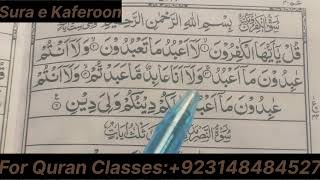 Sura e Kaferoon
بِسْمِ اللّٰهِ الرَّحْمٰنِ الرَّحِيْمِ
قُلْ يٰۤاَيُّهَا الْكٰفِرُوْنَ ۙ لَاۤ اَعْبُدُ مَا تَعْبُدُوْنَ ۙ وَلَاۤ اَنْتُمْ
عٰبِدُوْنَ مَاۤ اَعْبُدُ ۚ وَلَاۤ اَنَا عَابِدٌ مَّا عَبَدْتُّمْ ۙ وَلَاۤ اَنْتُمْ
عٰبِدُوْنَ مَاۤ اَعْبُدُ لَكُمْ دِيْنُكُمْ وَلِيَ دِيْنِ
سُوْرَةُ النَّصْرِ
For Quran Classes:+923148484527